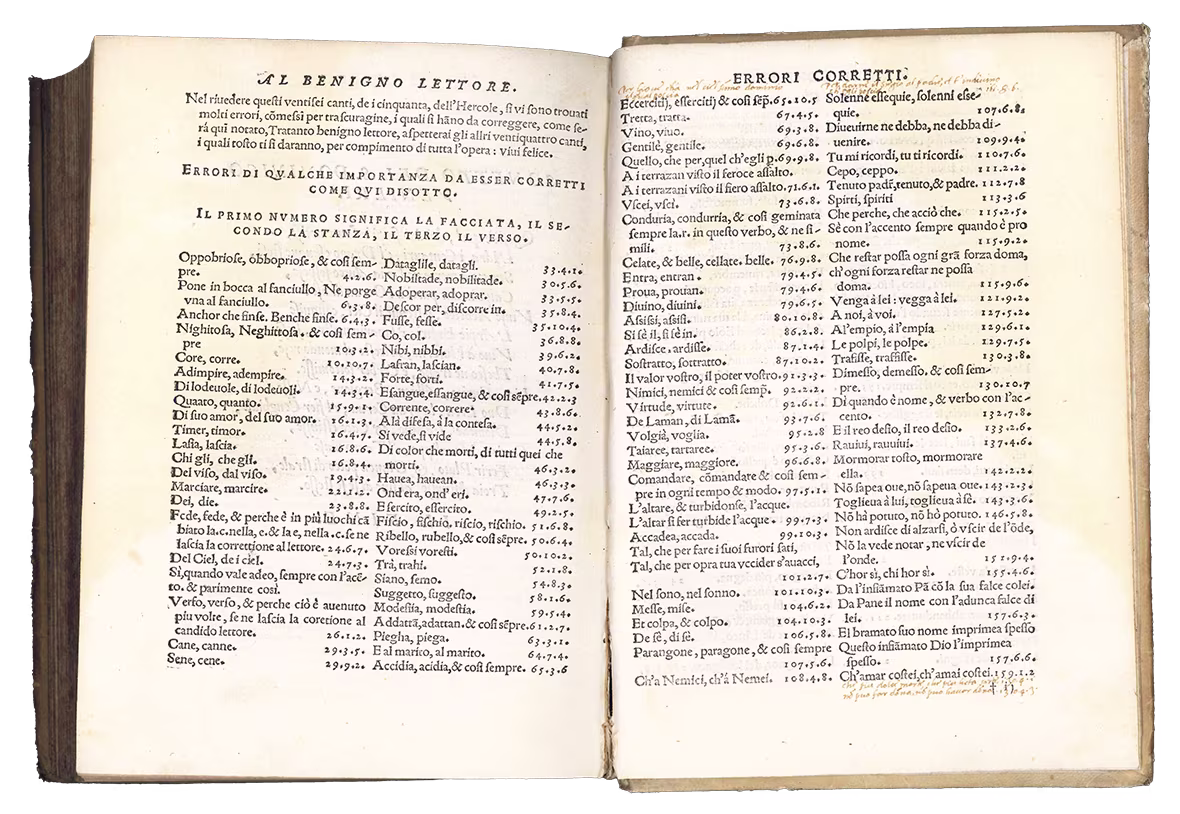 AL BENIGNO LETTORE.
Nel riuedere questi ventisei canti, de i cinquanta, dell'Hercole, si vi sono trouati
molti errori, cõmessi per trascuragine, i quali si hãno da correggere, come se-
rà qui notato, Tratanto benigno lettore, aspetterai gli altri ventiquattro canti,
i quali tosto ti si daranno, per compimento di tutta l'opera: viui felice.
ERRORI DI QVALCHE IMPORTANZA DA ESSER CORRETTI
COME QVI DISOTTO.
IL PRIMO NVMERO SIGNIFICA LA FACCIATA, IL SE-
CONDO LA STANZA, IL TERZO IL VERSO.
Oppobriose, obbopriose, & così sem-
pre. 4.2.6.
Pone in bocca al fanciullo, Ne porge
vna al fanciullo. 6.3.8.
Anchor che finse. Benche finse. 6.4.3.
Nighitosa, Neghittosa. & così sem-
pre 10.3.2.
Core, corre. 10.10.7.
Adimpire, adempire. 14.3.2.
Di lodeuole, di lodeuoli. 14.3.4.
Quaato, quanto. 15.9.1.
Di suo amor, del suo amor. 16.1.3.
Timer, timor. 16.4.7.
Lasia, lascia. 16.8.6.
Chi gli, che gli. 16.8.4.
Del viso, dal viso. 19.4.3.
Marciare, marcire. 22.1.2.
Dei, die. 23.8.8.
Fede, fede, & perche è in più luochi cã
biato la.c.nella, e.& la e, nella.c.se ne
lascia la correttione al lettore. 24.6.7.
Del Ciel, de i ciel. 24.7.3.
Sì, quando vale adeo, sempre con l'acẽ-
to. & parimente così.
Verso, verso, & perche ciò è auenuto
piu volte, se ne lascia la coretione al
candido lettore. 26.1.2.
Cane, canne. 29.3.5.
Sene, cene. 29.9.2.
Dataglile, datagli. 33.4.1.
Nobiltade, nobilitade. 30.5.6.
Adoperar, adoprar. 33.5.5.
Descor per, discorre in. 35.8.4.
Fusse, fesse. 35.10.4.
Co, col. 36.8.8.
Nibi, nibbi. 39.6.2.
Lasran, lascian. 40.7.8.
Forte, forti. 41.7.5.
Esangue, essangue, & così sẽpre. 42.2.3
Corrente, correre. 43.8.6.
Alà difesa, à la contesa. 44.5.2.
Si vede, si vide 44.5.8.
Di color che morti, di tutti quei che
morti. 46.3.2.
Hauea, hauean. 46.3.3.
Ond era, ond' eri. 47.7.6.
Esercito, essercito. 49.2.5.
Fiscio, fischio, riscio, rischio. 51.6.8.
Ribello, rubello, & così sẽpre. 50.6.4.
Voressi voresti. 50.10.2.
Trà, trahi. 52.1.8.
Siano, semo. 54.8.3.
Suggetto, suggesto. 58.1.6.
Modestia, modestia. 59.5.4.
Addattã, adattan. & così sẽpre. 61.2.7.
Piegha, piega. 63.3.1.
E al marito, al marito. 64.7.4.
Accidia, acidia, & così sempre. 65.3.6
ERRORI CORRETTI.
Eccercitij, essercitij & così sẽp. 65.10.5
Tretta, tratta. 67.4.5.
Vino, viuo. 69.3.8.
Gentilè, gentile. 69.6.8.
Quello, che per, quel ch'egli p. 69.9.8.
A i terrazan visto il feroce assalto.
A i terrazani visto il fiero assalto. 71.6.1.
Vscei, vsci. 73.6.8.
Conduria, condurria, & così geminata
sempre la.r. in questo verbo, & ne si-
mili. 73.8.6.
Celate, & belle, cellate. belle. 76.9.8.
Entra, entran. 79.4.5.
Proua, prouan. 79.4.6.
Diuino, diuini. 79.6.5.
Assisi, assisi. 80.10.8.
Si sè il, si sè in. 86.2.8.
Ardisce, ardisse. 87.1.4.
Sostratto, sottratto. 87.10.2.
Il valor vostro, il poter vostro. 91.3.3.
Nimici, nemici & così semp̃. 92.2.2.
Virtude, virtute. 92.6.1.
De Laman, di Lamã. 93.7.6.
Volgià, voglia. 95.2.8
Taiaree, tartaree. 95.3.6.
Maggiare, maggiore. 96.6.8.
Comandare, cõmandare & così sem-
pre in ogni tempo & modo. 97.5.1.
L'altare, & turbidonse, l'acque.
L'altar si fer turbide l'acque. 99.7.3.
Accadea, accada. 99.10.3.
Tal, che per fare i suoi furori sati,
Tal, che per opra tua vccider s'auacci,
101.2.7.
Nel sono, nel sonno. 101.10.3.
Messe, mise. 104.6.2.
Et colpa, & colpo. 104.10.3.
De sè, di sè. 106.5.8.
Parangone, paragone, & così sempre
107.5.6.
Ch'a Nemici, ch'á Nemei. 108.4.8.
Solenne essequie, solenni esse-
quie. 107.6.8.
Diueuirne ne debba, ne debba di-
uenire. 109.9.4.
Tu mi ricordi, tu ti ricordi. 110.7.6.
Cepo, ceppo. 111.2.2.
Tenuto padr, tenuto, & padre. 112.7.8
Spirti, spiriti 113.3.6
Che perche, che acciò che. 115.2.5.
Sè con l'accento sempre quando è pro
nome. 115.9.2.
Che restar possa ogni grã forza doma,
ch'ogni forza restar ne possa
doma. 115.9.6.
Venga à lei: vegga à lei. 121.9.2.
A noi, à voi. 127.5.2.
Al'empio, à l'empia 129.6.1.
Le polpi, le polpe. 129.7.5.
Trafisse, traffisse. 130.3.8.
Dimesso, demesso, & così sem-
pre. 130.10.7
Di quando è nome, & verbo con l'ac-
cento. 132.7.8.
E il reo desio, il reo desio. 133.2.6.
Rauiui, rauuiui. 137.4.6.
Mormorar tosto, mormorare
ella. 142.2.2.
Nõ sapea oue, nõ sapeua oue. 143.2.3.
Toglieua à lui, toglieua à sè. 143.3.6.
Nõ hà potuto, nõ hò potuto. 146.5.8.
Non ardisce di alzarsi, ò vscir de l'õde,
Nõ la vede notar, ne vscir de
l'onde. 151.9.4.
C'hor sì, chi hor sì. 155.4.6.
Da l'infiãmato Pã cõ la sua falce colei.
Da Pane il nome con l'adunca falce di
lei. 157.6.3.
El bramato suo nome imprimea spesso
Questo infiãmato Dio l'imprimea
spesso. 157.6.6.
Ch'amar costei, ch'amai costei. 159.1.2